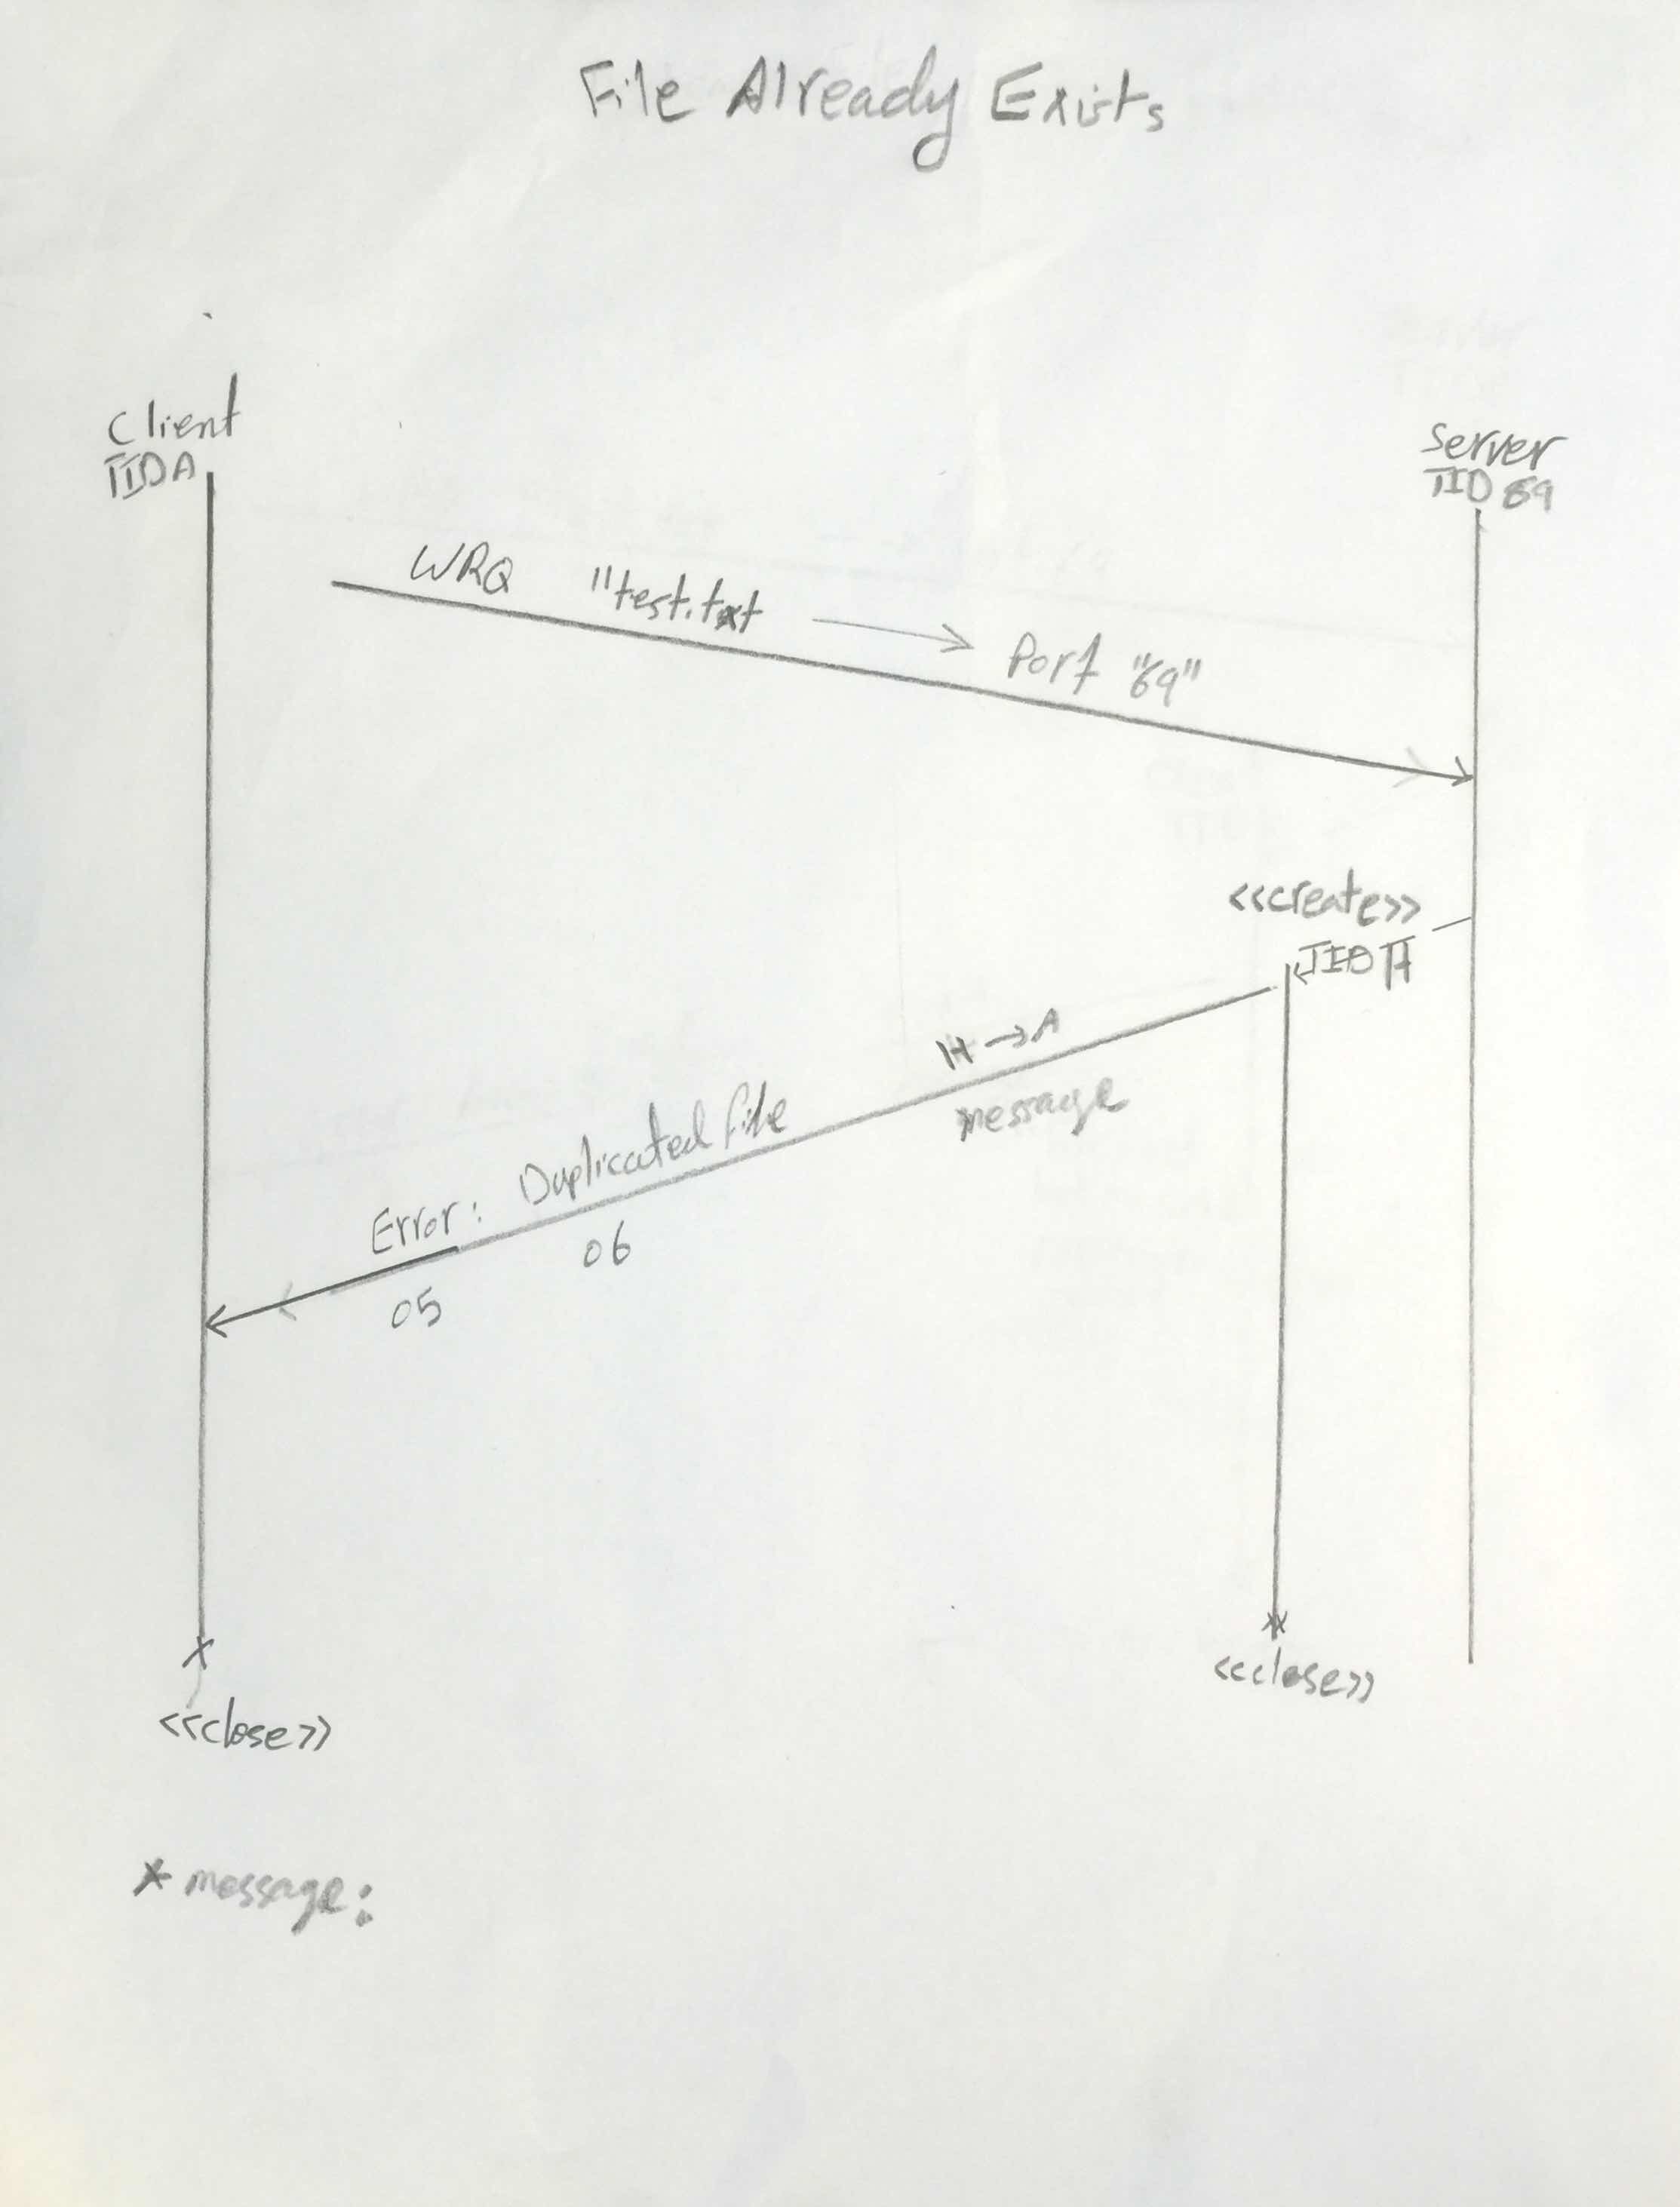 File Already Exists
Client
TIDA
Server
TID 69
WRQ "test.txt → Port "69"
<<create>>
TID H
H → A
message
Error: Duplicated file
05 06
<<close>>
<<close>>
* message: